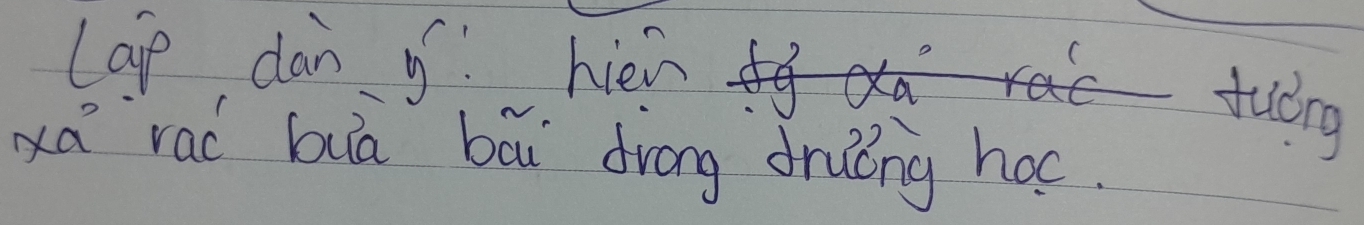 Lập dàn ý: hiện tượng
xả rác bừa bãi trong trường học.